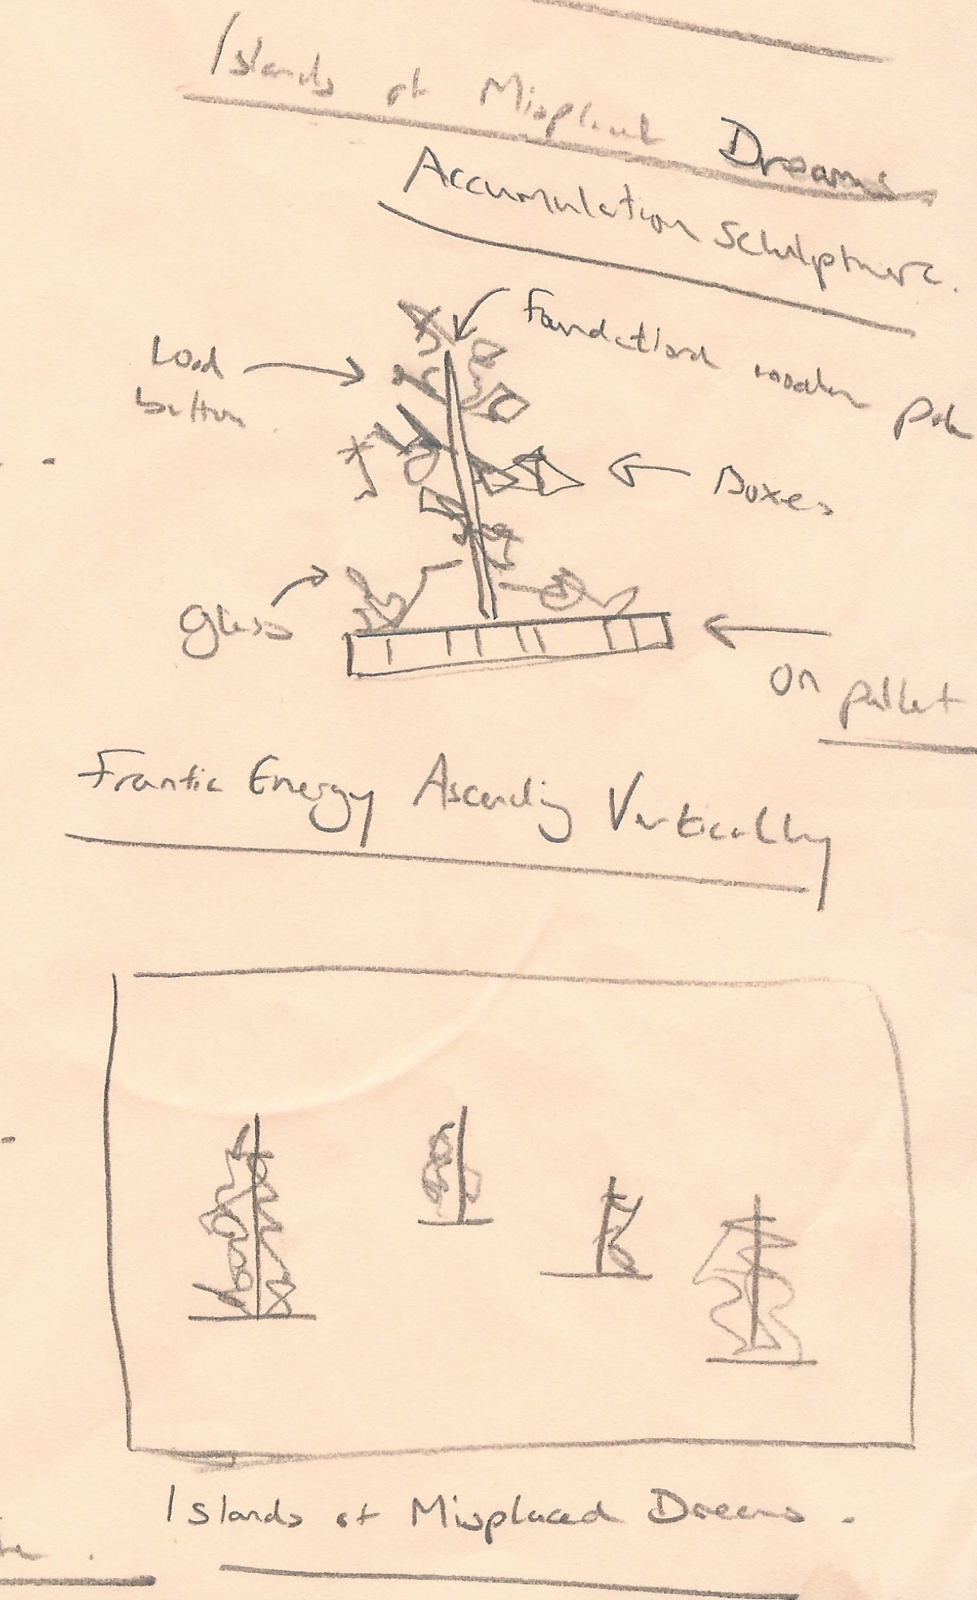 Islands of Misplaced Dreams
Accumulation Sculpture.
Foundational wooden
Boxes
glass
On pallet
Frantic Energy Ascending Vertically
Islands of Misplaced Dreams.